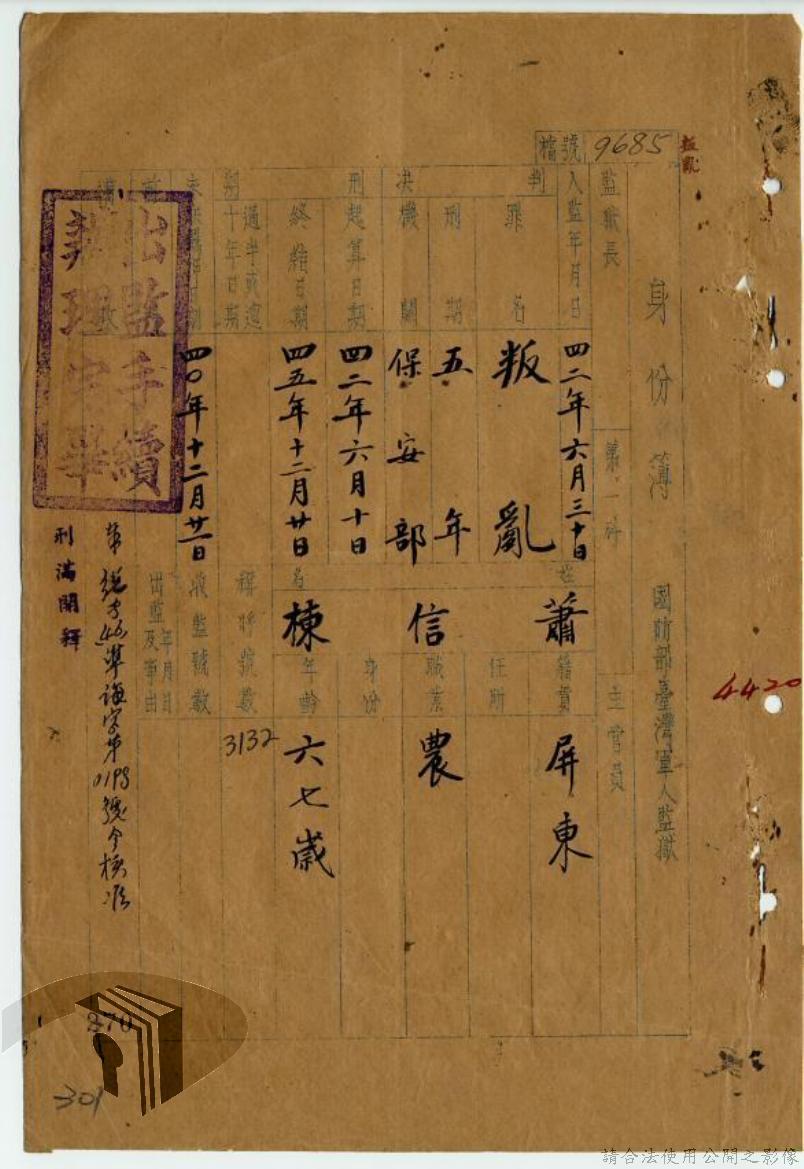 叛亂
檔號 9685
身份簿 國防部臺灣軍人監獄
4420
監獄長 第一科 主管員
入監年月日 四二年六月三十日
姓名 蕭信棟
籍貫 屏東
判決
罪名 叛亂
刑期 五年
機關 保安部
住所
職業 農
刑期
起算日期 四二年六月十日
身份
終結日期 四五年十二月廿日
年齡 六七歲
過半或逾十年日期
呼號數 3132
四〇年十二月廿一日
收監號數
出監年月日及事由
出監手續
辦理完畢
號令核准
刑滿開釋
270
301
請合法使用公開之影像